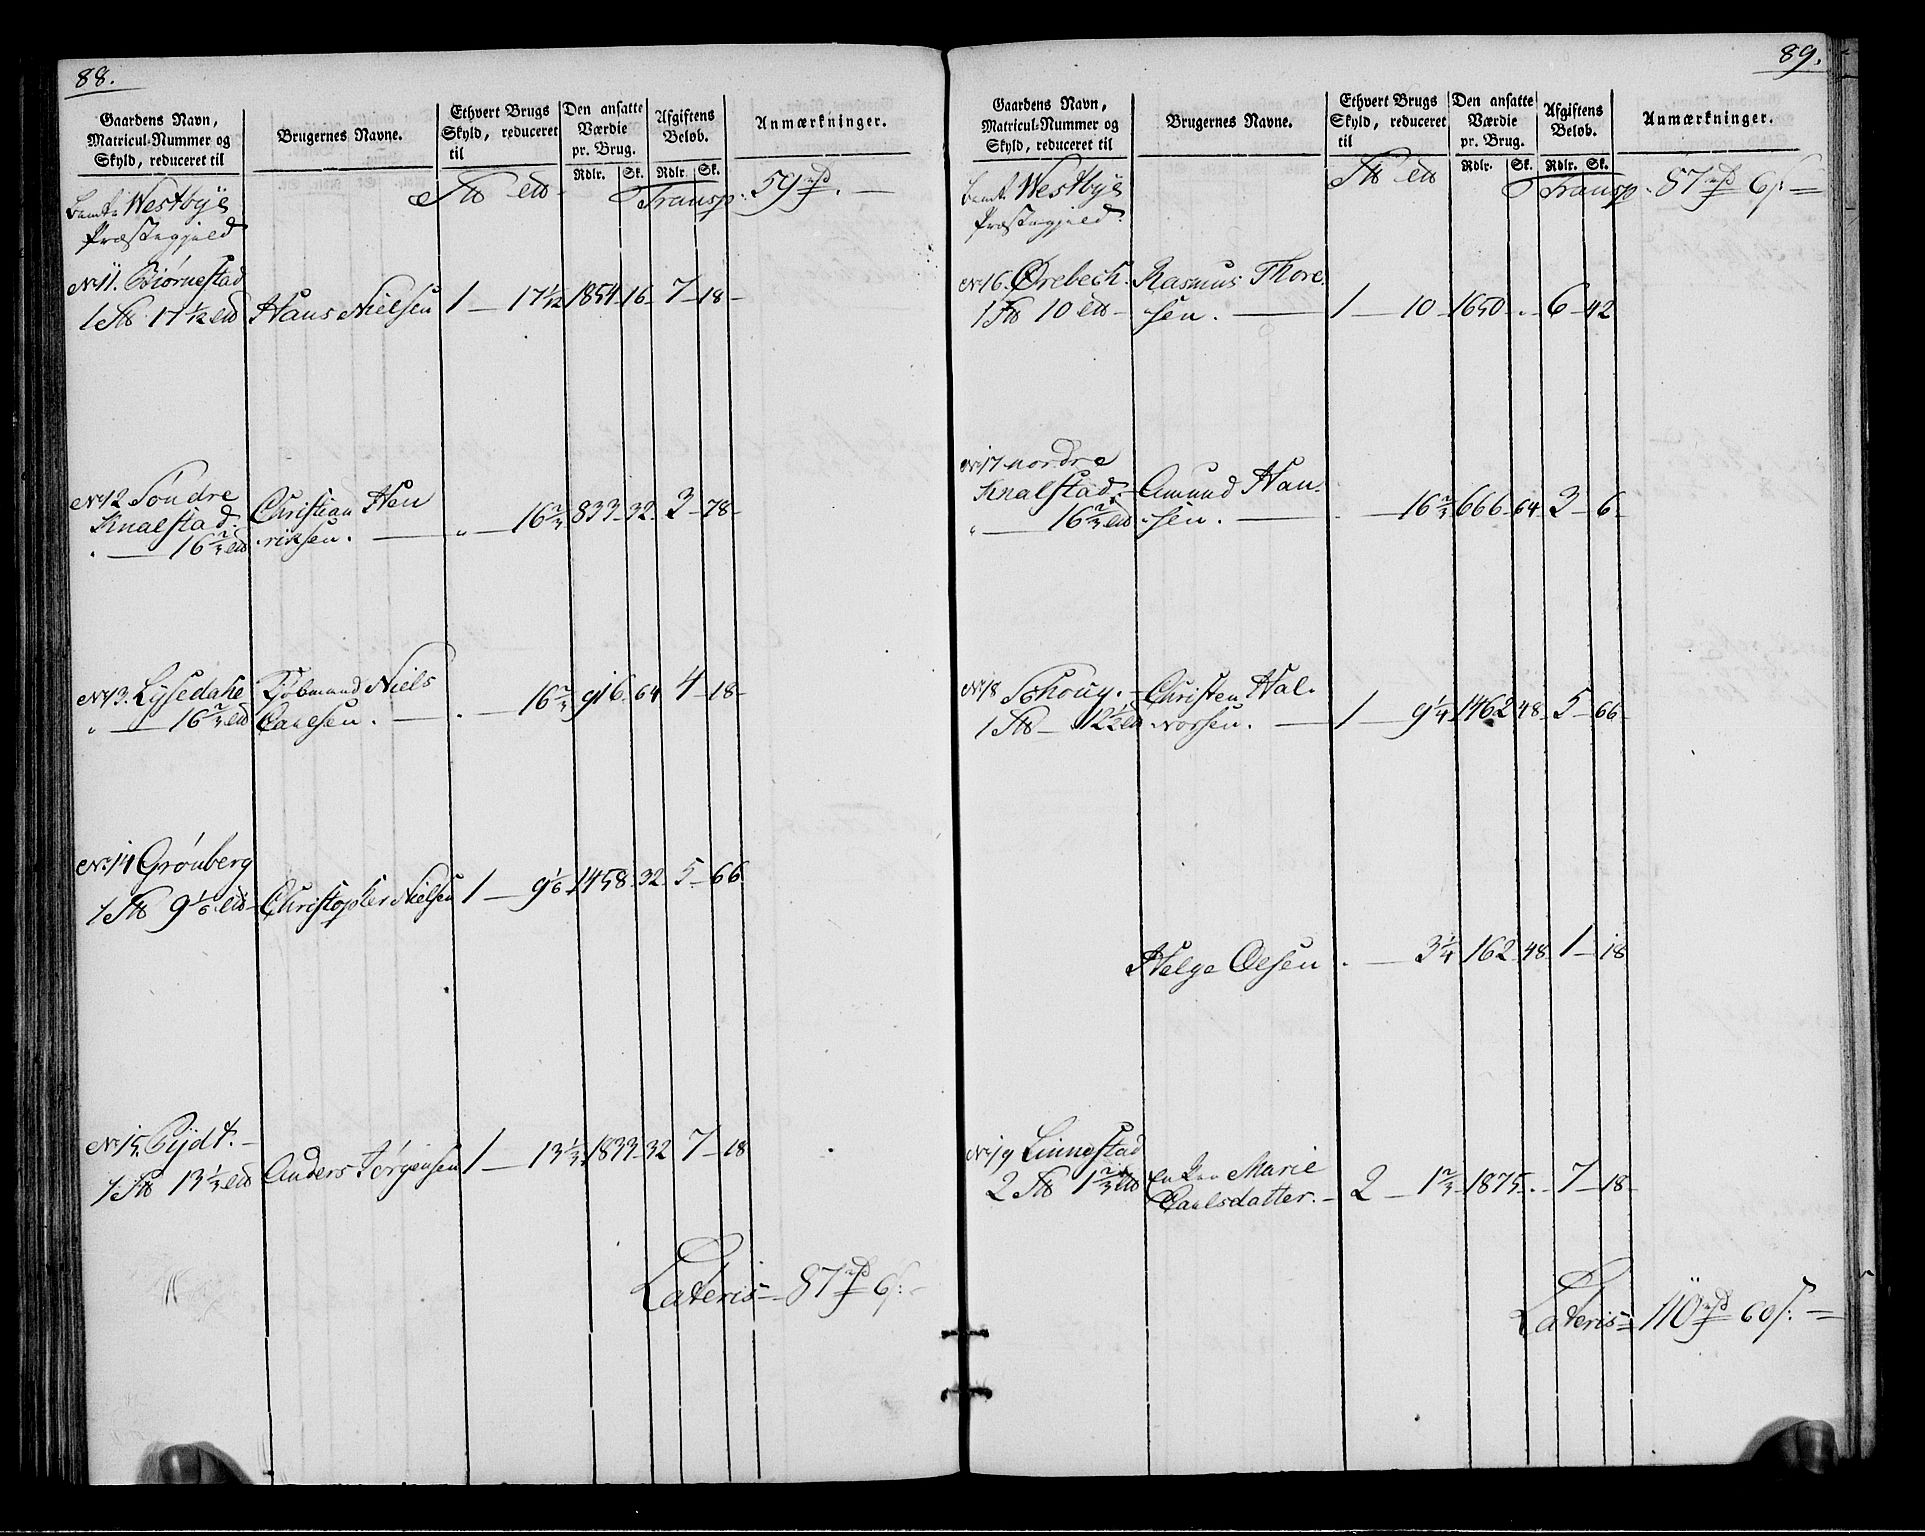 88.
Gaardens Navn,
Matricul-Nummer og
Skyld, reduceret til
Brugernes Navne.
Ethvert Brugs
Skyld, reduceret
til
Den ansatte
Værdie
pr. Brug.
Rdlr. Sk.
Afgiftens
Beløb.
Rdlr. Sk.
Anmærkninger.
Westbye
Præstegjeld
Transp. 59
No 11. Biørnestad
1 17 1/12 Hans Nielsen 1 — 17 1/12 1854 16 7 18
No 12 Søndre
Knalstad.
16 2/3 Christian Hen
riksen. 16 2/3 833 32 3 78
No 13. Lysedahe
16 2/3 Kjøbmand Niels
Carlsen. 16 2/3 916 64 4 18
No 14 Grønberg
1 9 1/6 Christopher Nielsen 1 — 9 1/6 1458 32 5 66
No 15.
1 13 1/3 Anders Jørgensen 1 — 13 1/3 1833 32 7 18
Lateris 87 6
89.
Gaardens Navn,
Matricul-Nummer og
Skyld, reduceret til
Brugernes Navne.
Ethvert Brugs
Skyld, reduceret
til
Den ansatte
Værdie
pr. Brug.
Rdlr. Sk.
Afgiftens
Beløb.
Rdlr. Sk.
Anmærkninger.
Westbye
Præstegjeld.
Transp. 87 6
No 16. Ørebech.
1 10 Rasmus Thore
sen. 1 — 10 1650 6 42
No 17 nordre
Knalstad.
16 2/3 Amund Han
sen. 16 2/3 666 64 3 6
No 18 Schoug.
1 12 1/2 Christen Hal
vorsen. 1 — 9 1/4 1462 48 5 66
Helge Olsen 3 1/4 162 48 1 18
No 19 Linnestad
2 1 2/3 Enken Marie
Carlsdatter. 2 — 1 2/3 1875 7 18
Lateris 110 60